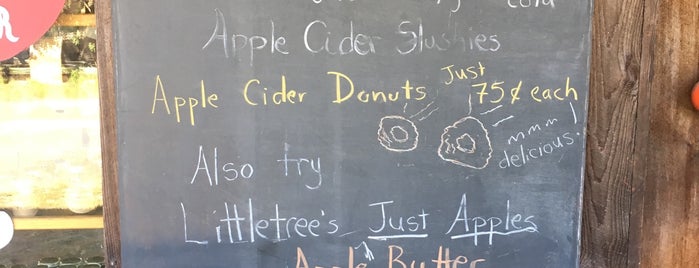 cold
Apple Cider Slushies
Apple Cider Donuts Just 75¢ each
mmm
delicious.
Also try
Littletree's Just Apples
Apple Butter
R